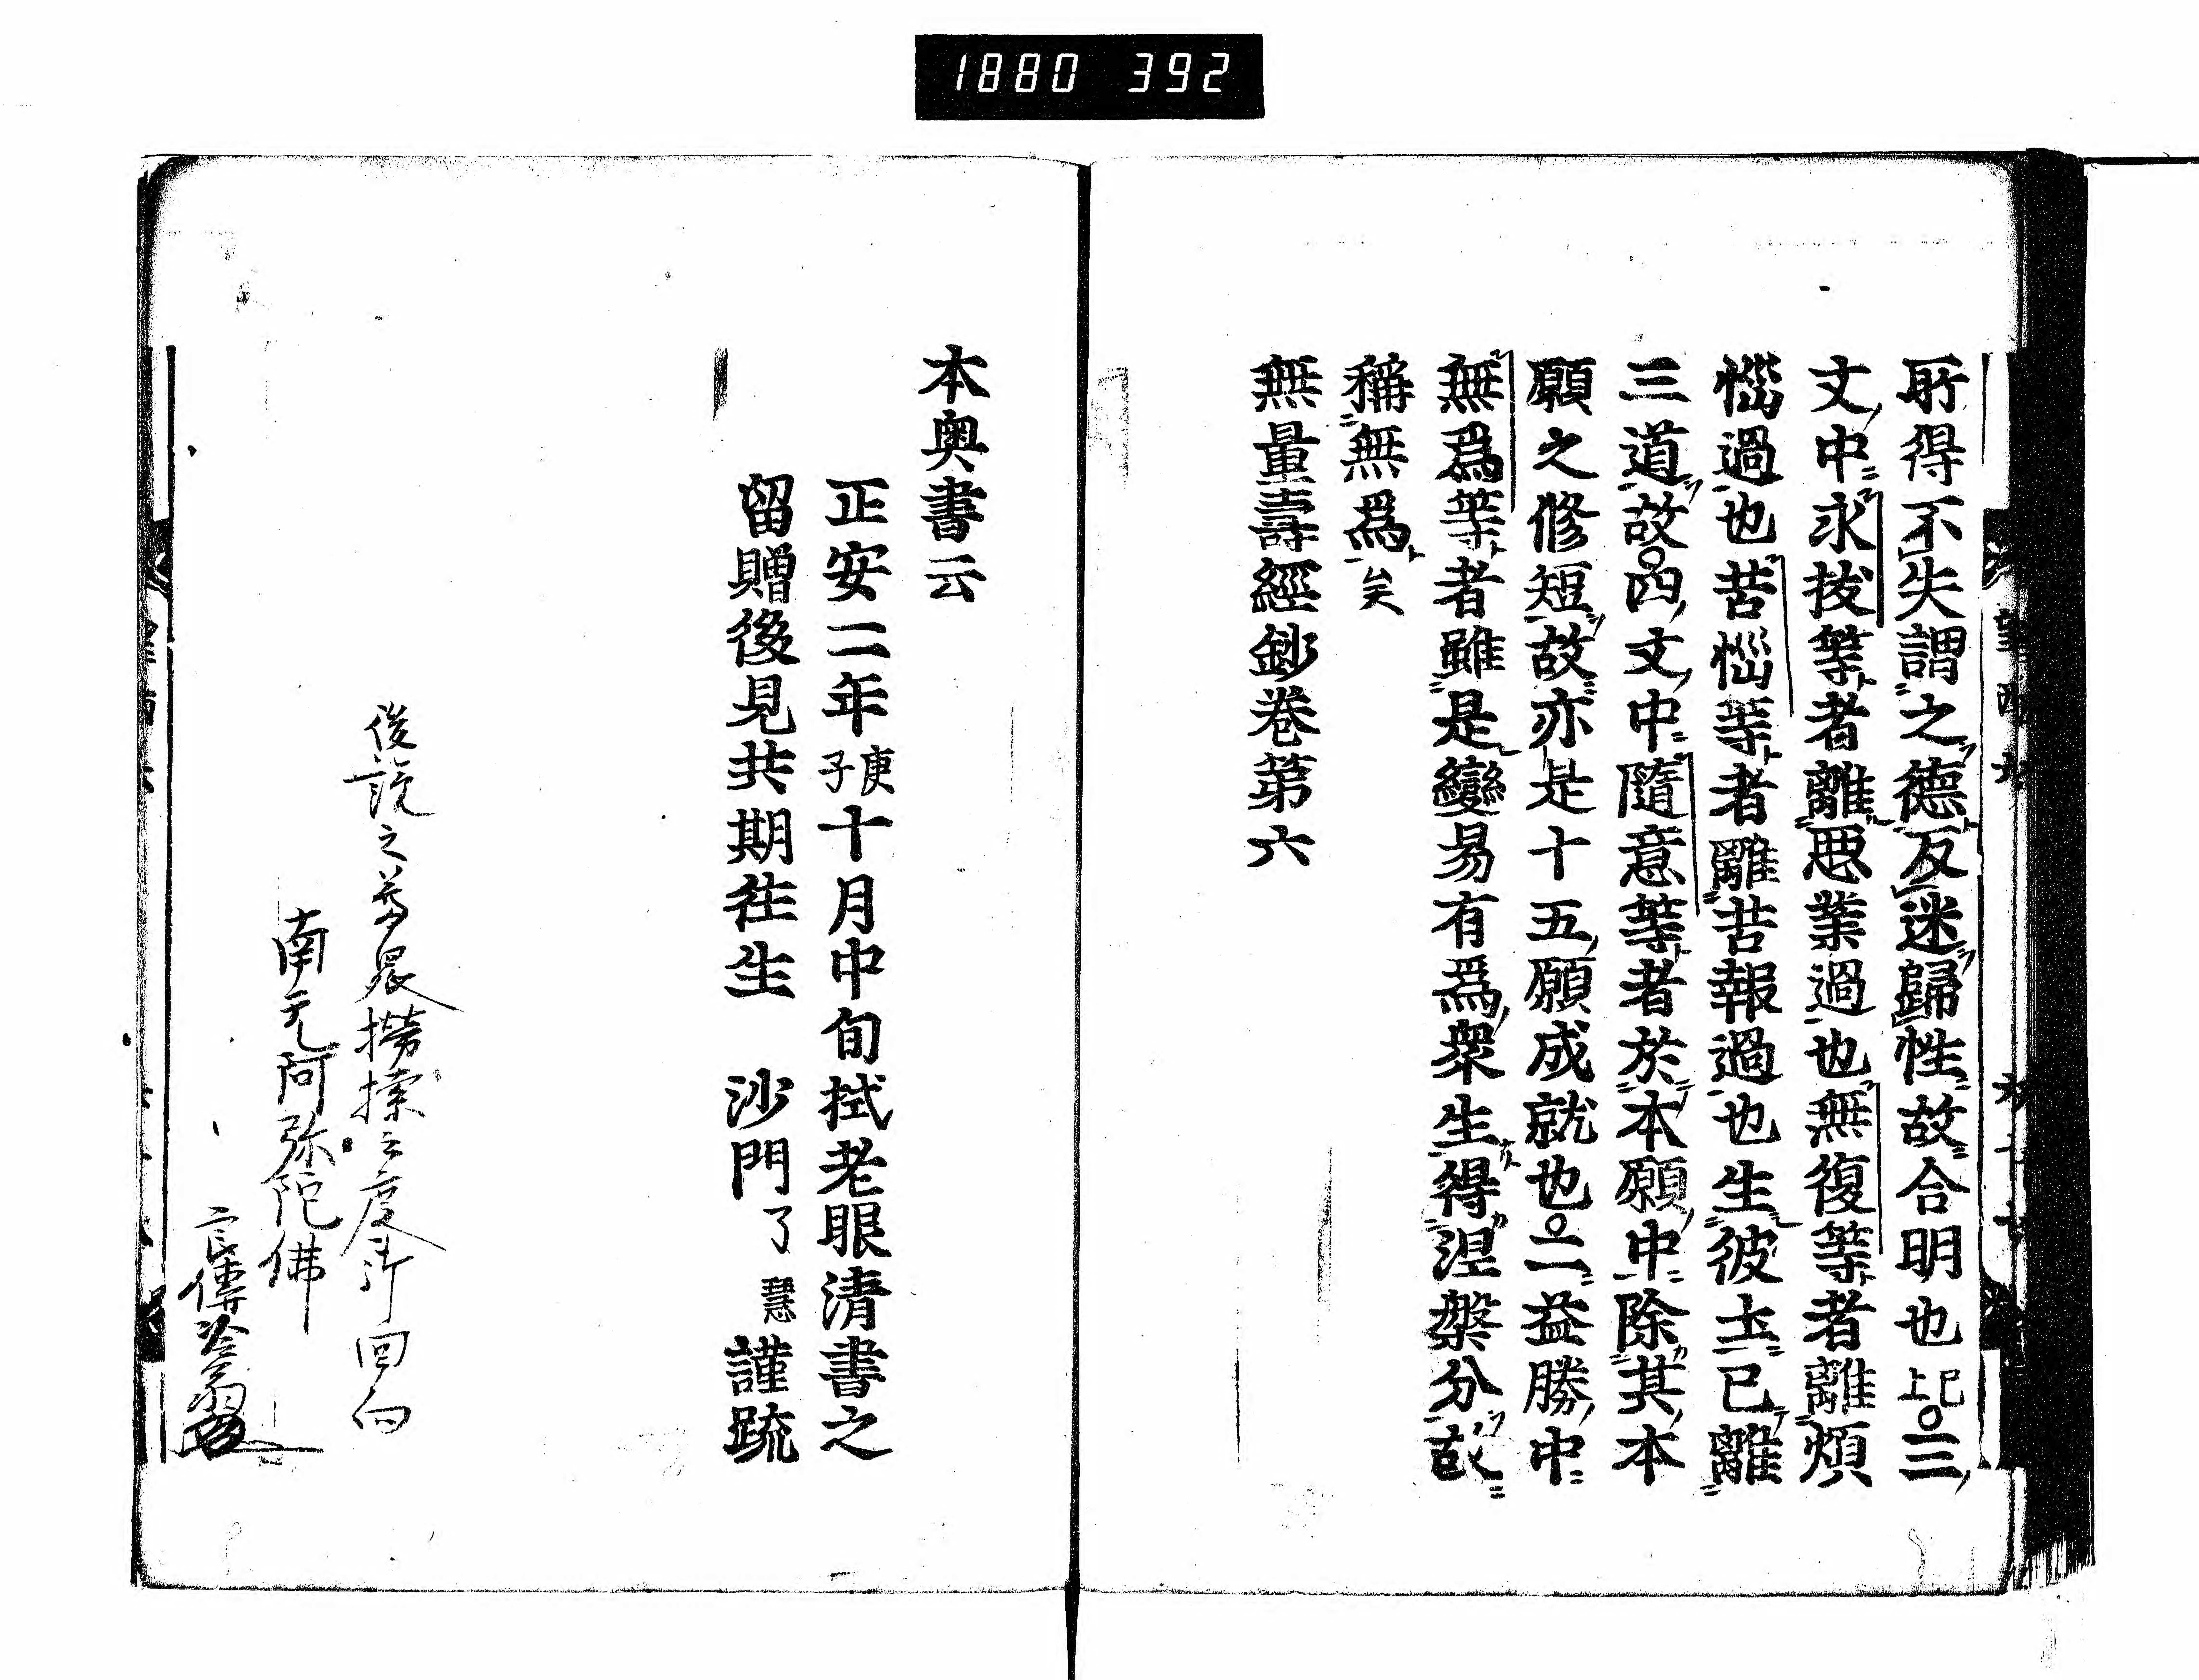 1880 392
所得不失謂之德反迷歸性故合明也已上○三
文中永拔等者離惡業過也無復等者離煩
惱過也苦惱等者離苦報過也生彼土已離
三道故○四文中隨意等者於本願中除其本
願之修短故亦是十五願成就也○二益勝中
無爲等者雖是變易有爲衆生得涅槃分故
稱無爲矣
無量壽經鈔卷第六
本奥書云
正安二年庚子十月中旬拭老眼清書之
留贈後見共期徃生 沙門了慧謹䟽
南无阿弥陀佛